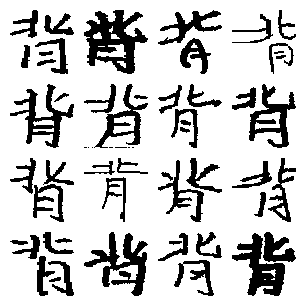 背背背背
背背背背
背背背背
背背背背